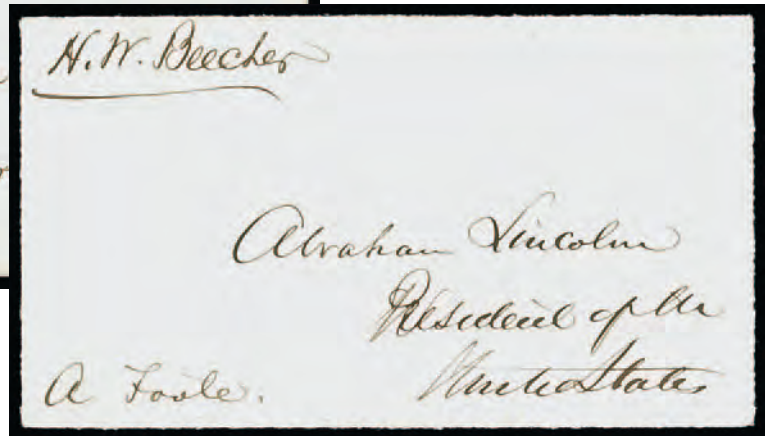 H. W. Beecher
Abraham Lincoln
President of the
United States
A Foote.